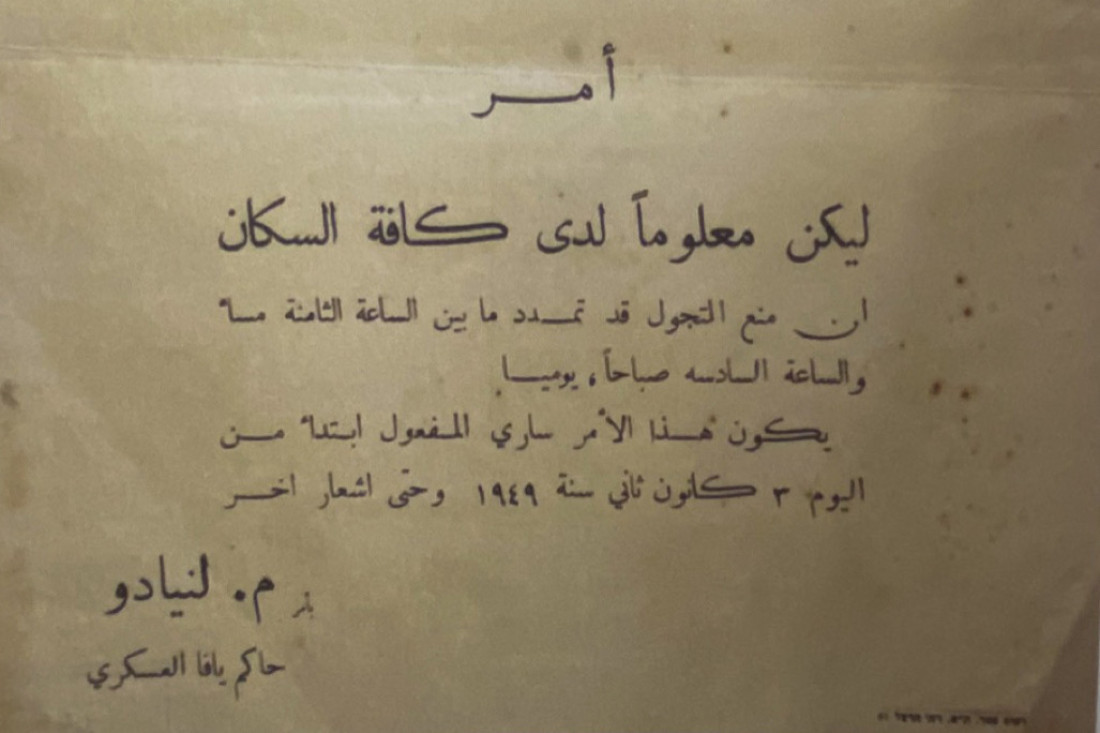 أمر
ليكن معلوماً لدى كافة السكان
ان منع التجول قد تمدد ما بين الساعة الثامنة مساءً
والساعة السادسه صباحاً، يوميا
يكون هذا الأمر ساري المفعول ابتداءً من
اليوم ٣ كانون ثاني سنة ١٩٤٩ وحتى اشعار اخر
م. لنيادو
حاكم يافا العسكري